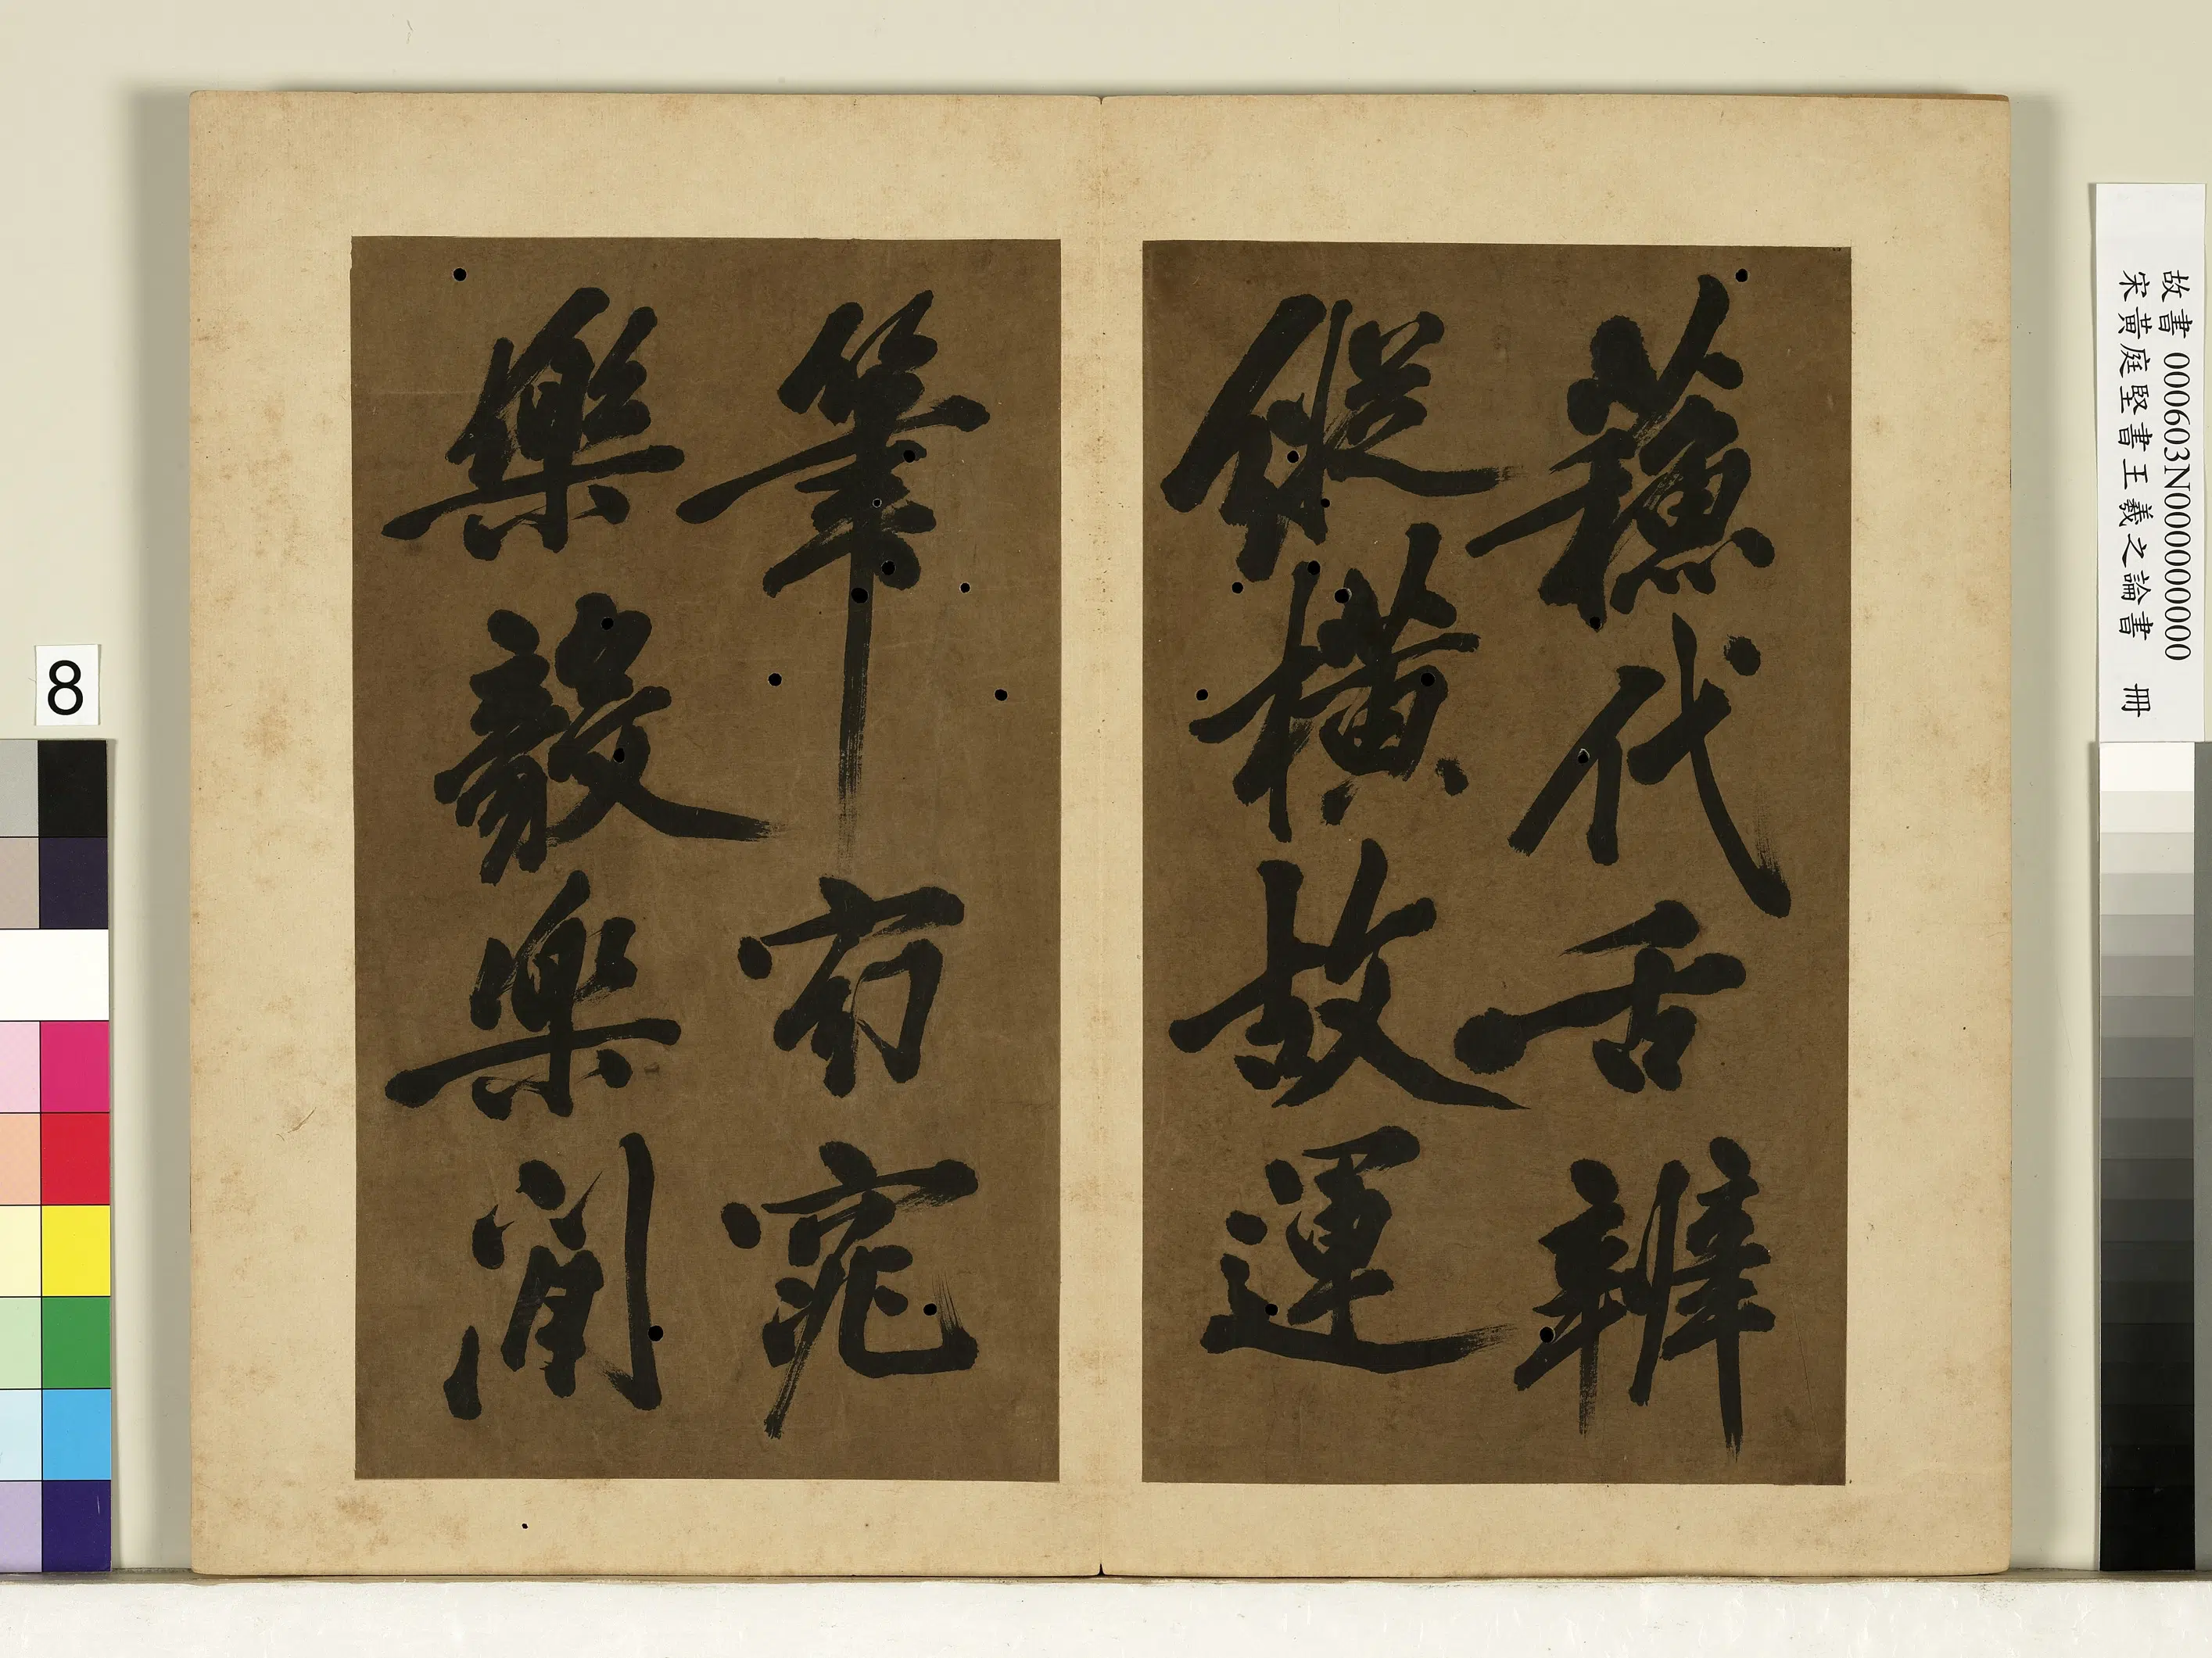 蘓代舌辨
縱橫故運
筆窈窕
樂毅樂閒
故書 000603N000000000
宋黃庭堅書王羲之論書 冊
8